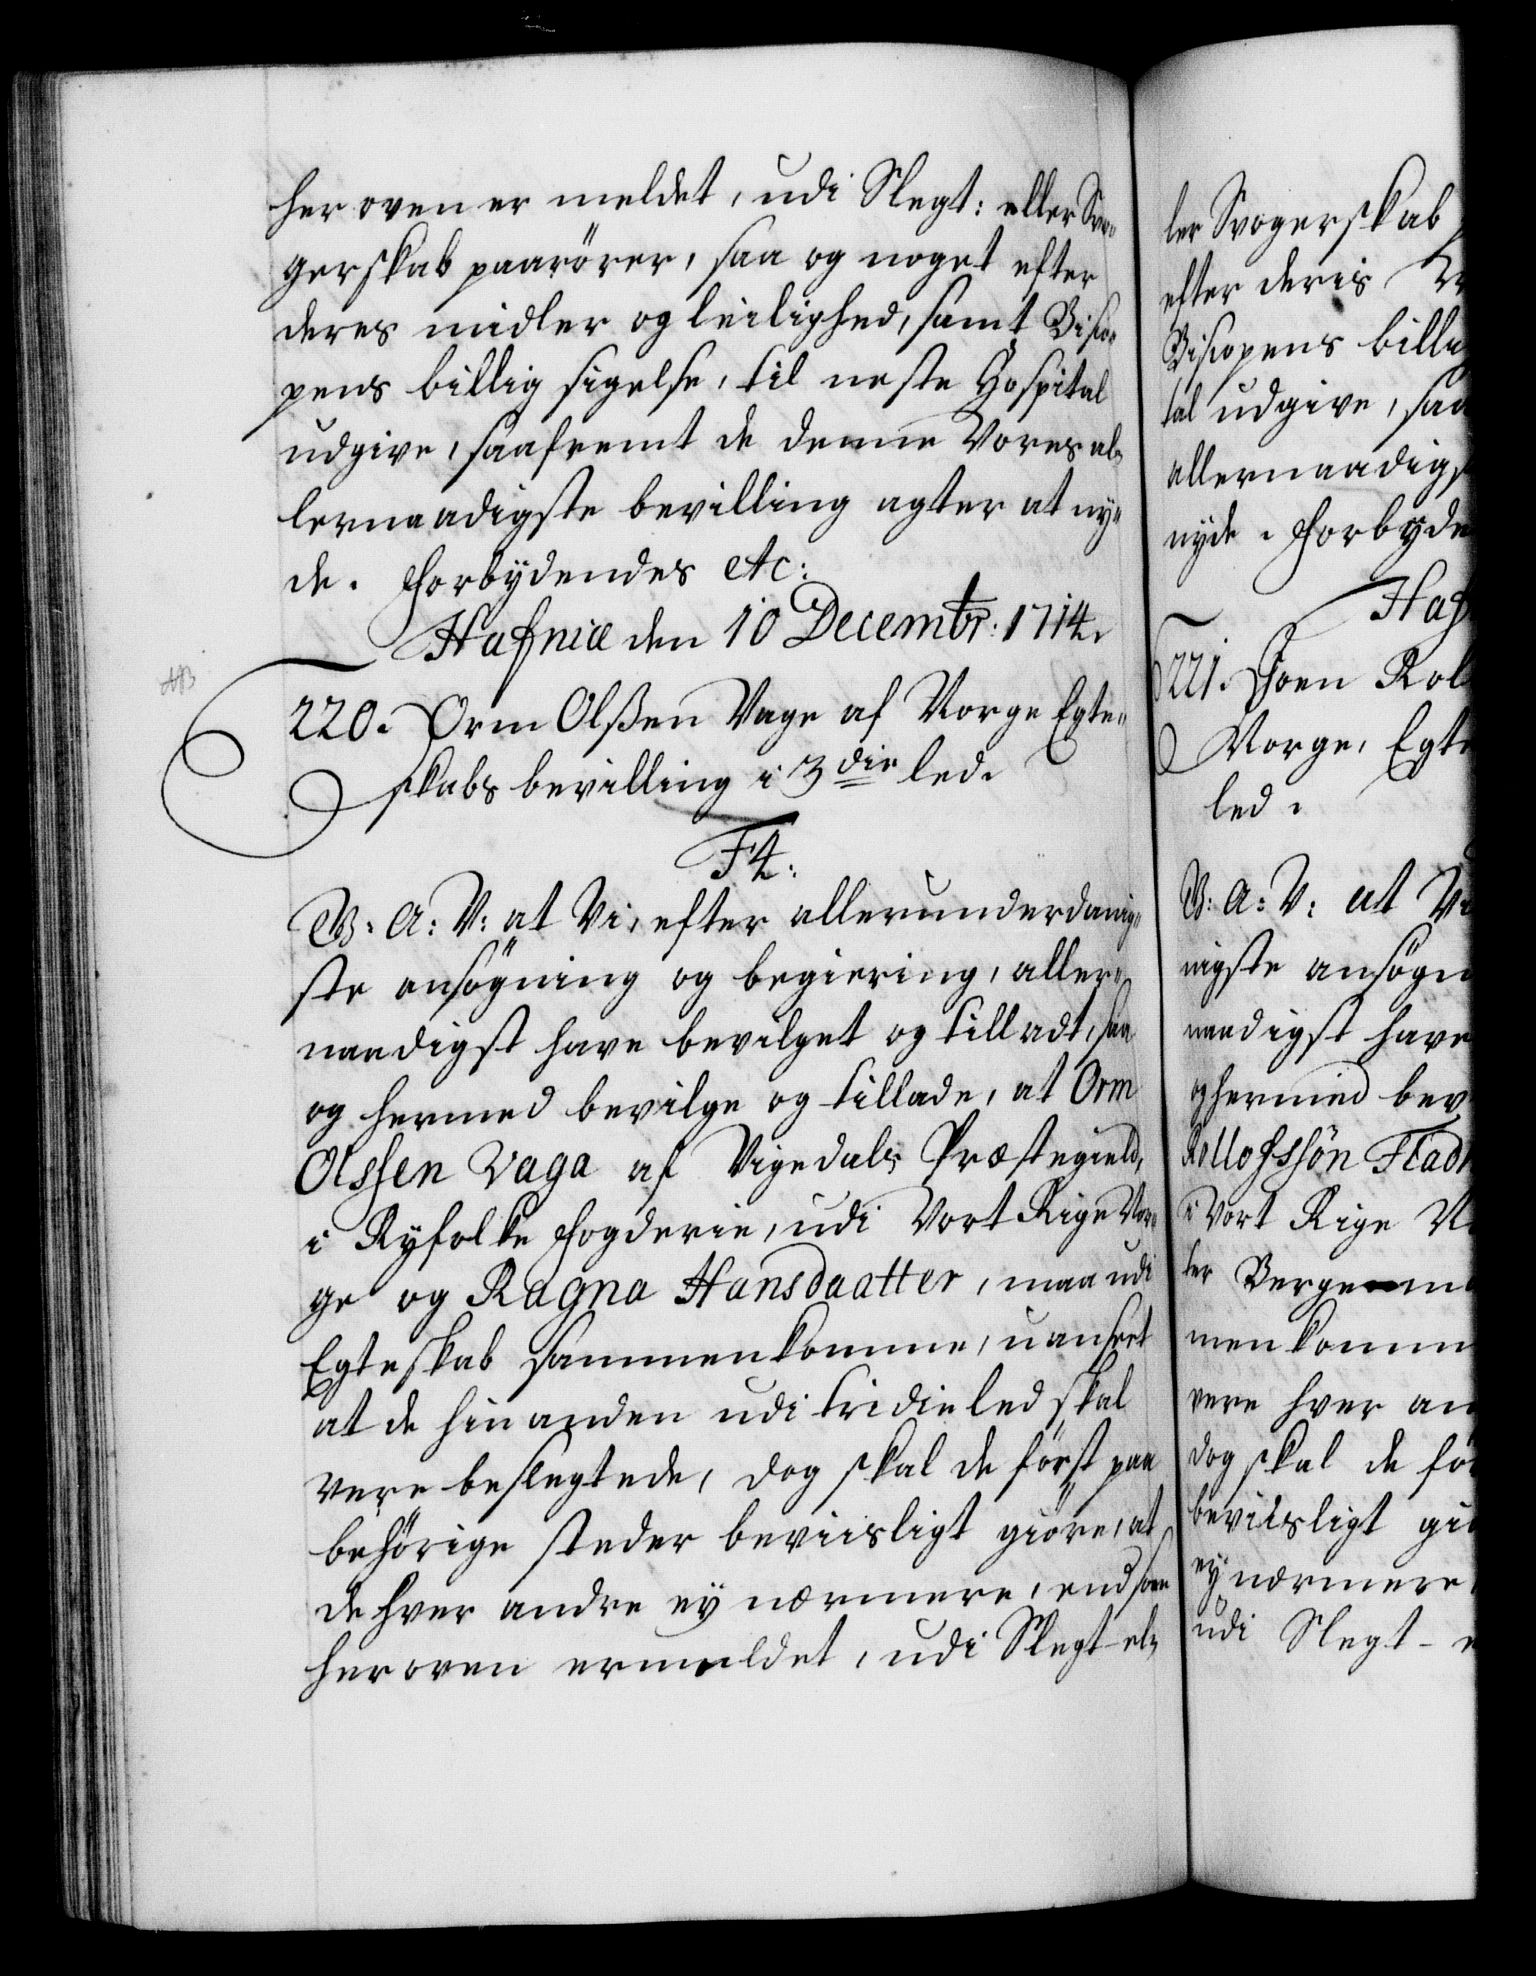 her oven er meldet, udi Slegt: eller Svo-
gerskab paarörer, saa og noget efter
deres midler og leilighed, samt Bisco-
pens billig sigelse, til neste Hospital
udgive, saafremt de denne Vores al-
lernaadigste bevilling agter at ny-
de. Forbydendes etc:
Hafniæ den 10 Decembr: 1714.
220. Orm Olßen Vage af Norge Egte-
skabs bevilling i 3die led.
F4:
W: A: V: at Vi, efter allerunderdanig-
ste ansögning og begiering, aller-
naadigst have bevilget og tilladt, saa
og hermed bevilge og tillade, at Orm
Olssen Vaga af Vigedals Præstegield,
i Ryfolke Fogderie, udi Vort Rige Nor-
ge og Ragna Hansdaatter, maa udi
Egteskab sammenkomme, uanseet
at de hinanden udi tridie led skal
vere beslegtede, dog skal de först paa
behörige steder beviisligt giöre, at
de hver andre ey nærmere, end som
her oven ermeldet, udi Slegt- el-
ler Svogerskab
efter deris
Biscopens billig
tal udgive, saa
allernaadigst
nyde. Forbyde
Haf
221. Joen Rol
Norge, Egte
led.
W: A: V: at Vi
nigste ansögn
naadigst have
og hermed bev
Rollofssön Flad
i Vort Rige N
ter Bergen m
men komm
vere hver an
dog skal de fö
beviisligt gi
ey nærmere
udi Slegt- e